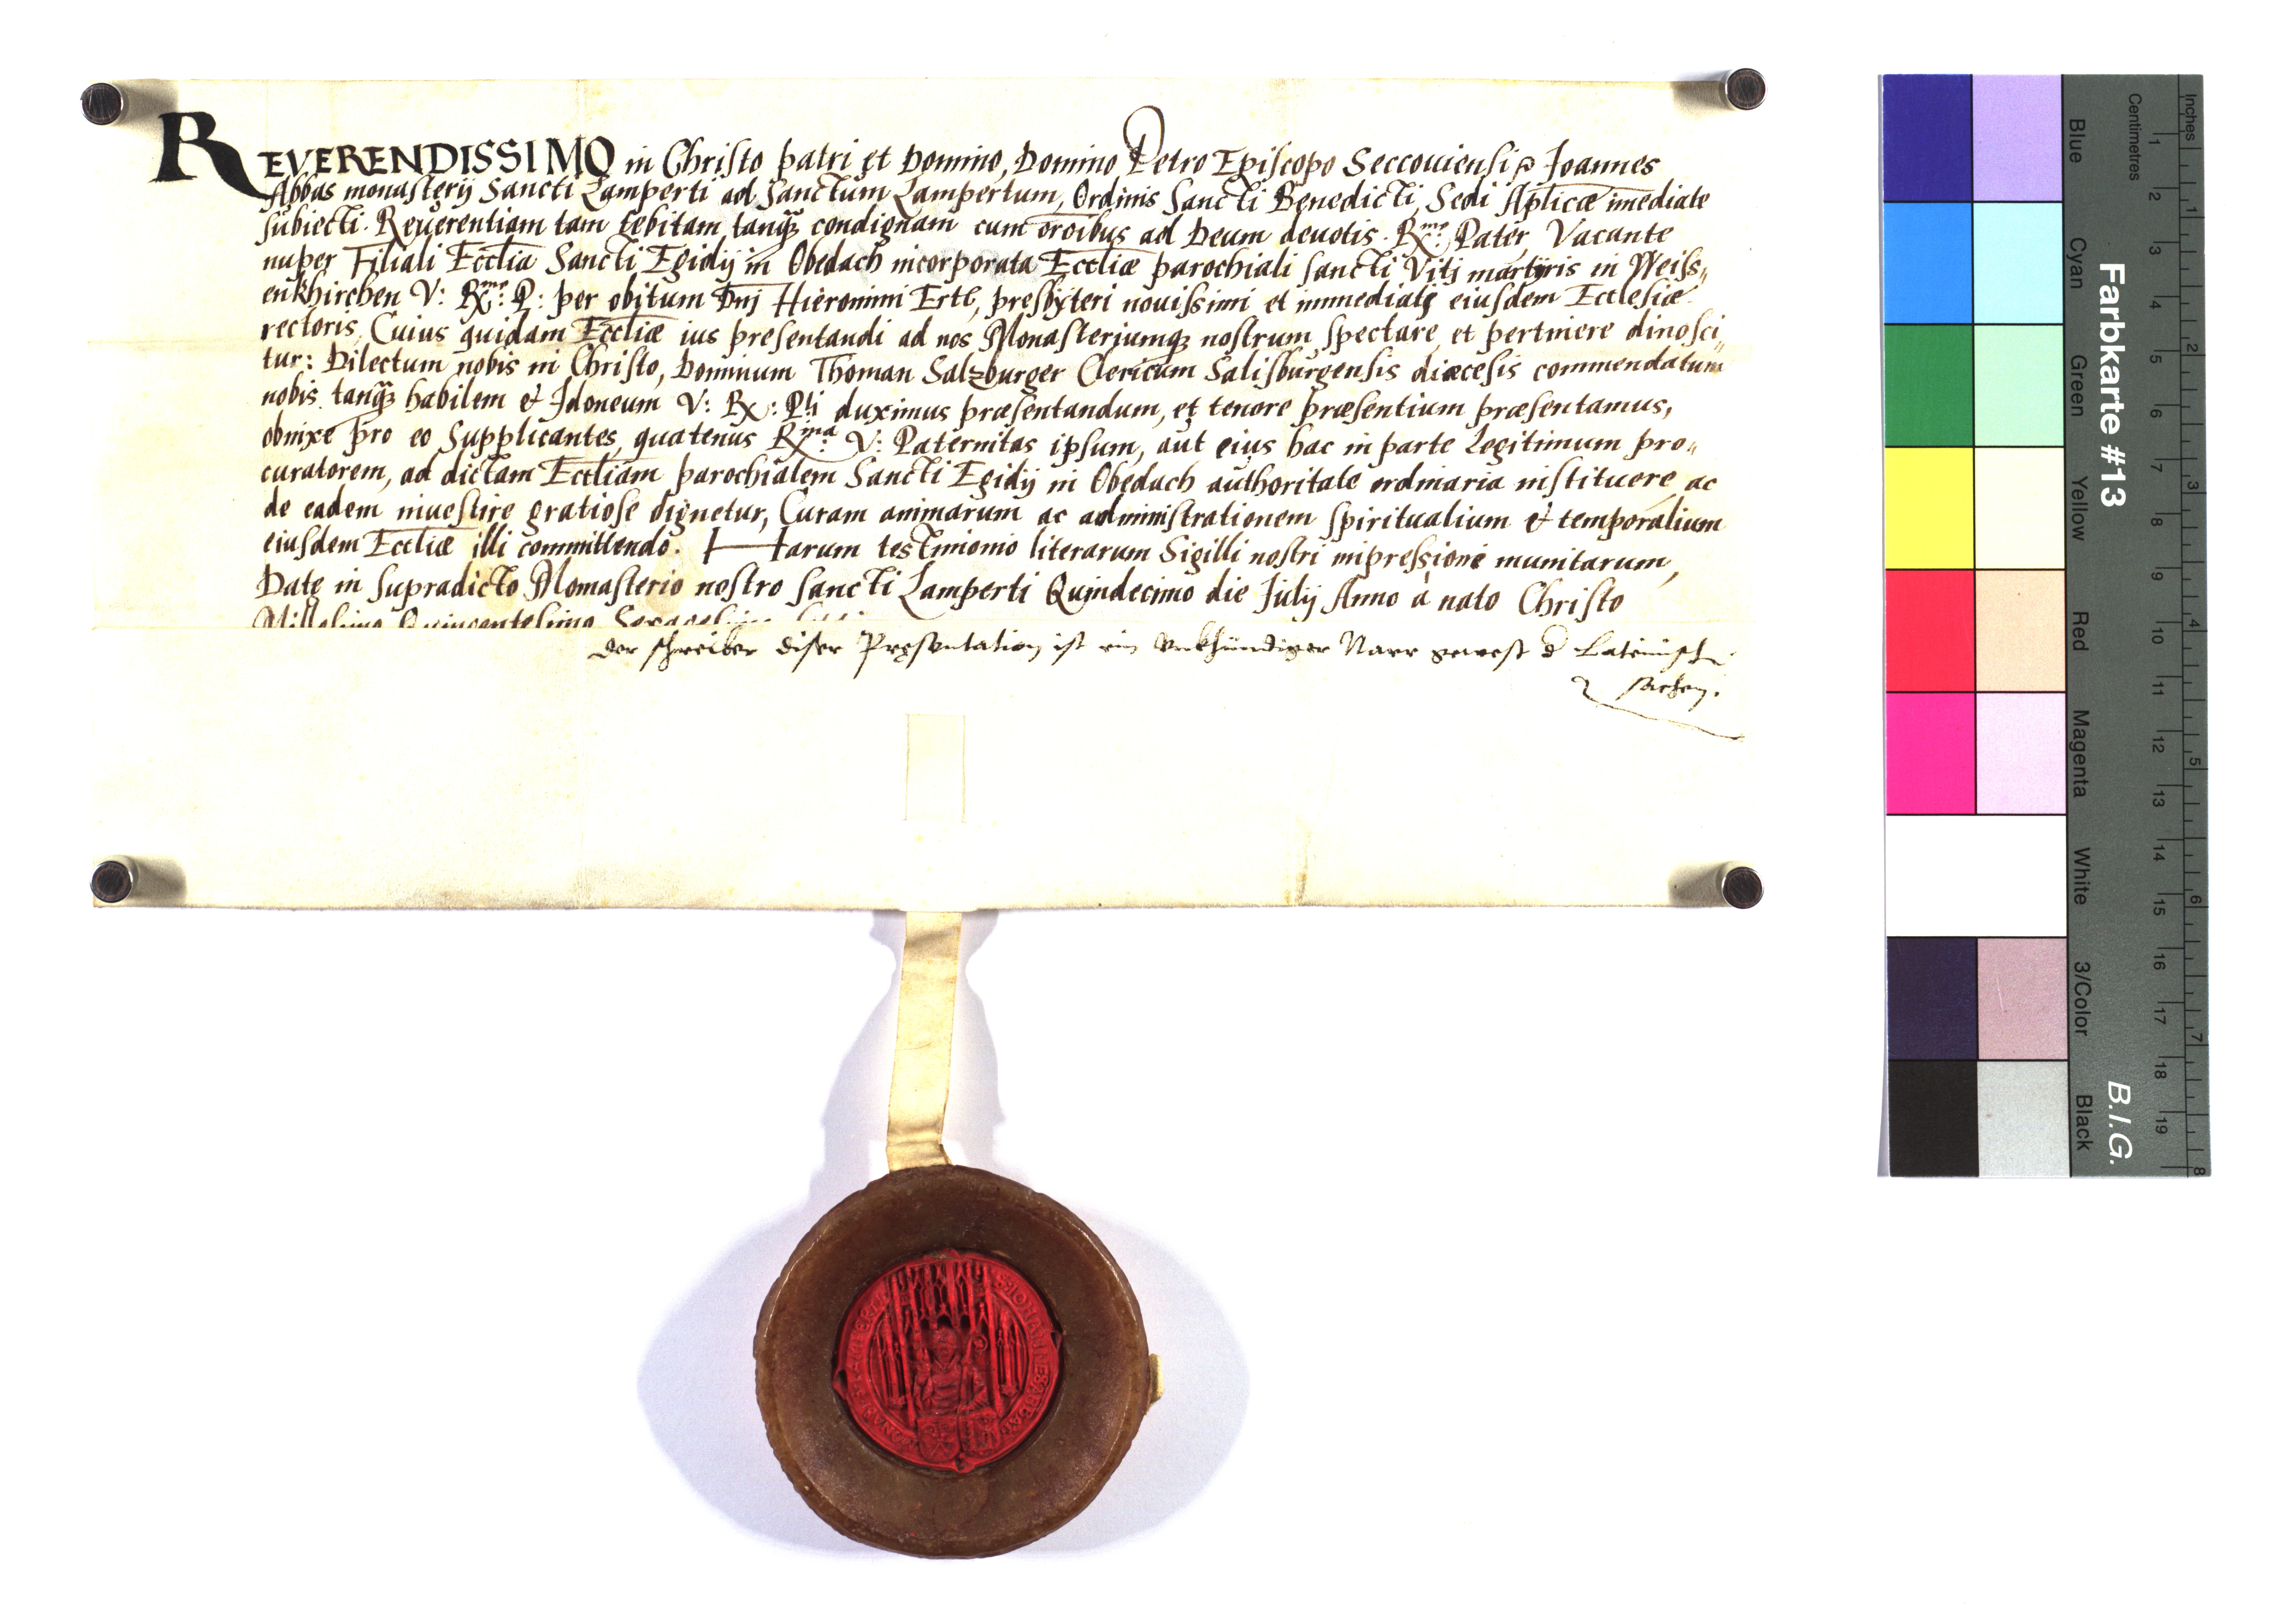 REVERENDISSIMO in Christo patri et Domino, Domino Petro Episcopo Seccouiensi Joannes
Abbas monasterij Sancti Lamperti ad Sanctum Lampertum, Ordinis Sancti Benedicti, Sedi Aplicæ imediate
subiecti. Reuerentiam tam debitam tanq̃ condignam cum oroibus ad Deum deuotis. Rx̃me: Pater Vacante
nuper Filiali Ecctia Sancti Egidij in Obedach incorporata Ecctiæ parochiali sancti Viti martyris in Weiss„
enkhirchen V: Rx̃mæ: P: per obitum Dnj Hieronimi Ertl, presbyteri nouissimi et immediatę eiusdem Ecclesiæ
rectoris, Cuius quidam Ecctiæ ius presentandi ad nos Monasteriumq; nostrum spectare, et pertinere dinosci„
tur: Dilectum nobis in Christo, Dominum Thoman Salzburger Clericum Salisburgensis diæcesis commendatum
nobis tanq̃ habilem & Idoneum V: Rx: Pti duximus præsentandum, et tenore præsentium præsentamus,
obnixe pro eo Supplicantes, quatenus Rx̃ma V: Paternitas ipsum, aut eius hac in parte Legitimum pro„
curatorem, ad dictam Ecctiam parochialem Sancti Egidij in Obedach authoritate ordinaria instituere ac
de eadem inuestire gratiose dignetur, Curam animarum ac administrationem spiritualium & temporalium
eiusdem Ecctiæ illi committendo. Harum testimonio literarum Sigilli nostri impressione munitarum,
Datę in supradicto Monasterio nostro sancti Lamperti Quindecimo die Julij Anno à nato Christo
Millesimo Quingentesimo Sexagesimo
Der schreiber diser Pręsentation ist ein vnkhündiger Narr gewest d Lateinisch
sachen.
Farbkarte #13
B.I.G.
Centimetres
Inches
Blue
Cyan
Green
Yellow
Red
Magenta
White
3/Color
Black
1 2 3 4 5 6 7 8 9 10 11 12 13 14 15 16 17 18 19
1 2 3 4 5 6 7 8